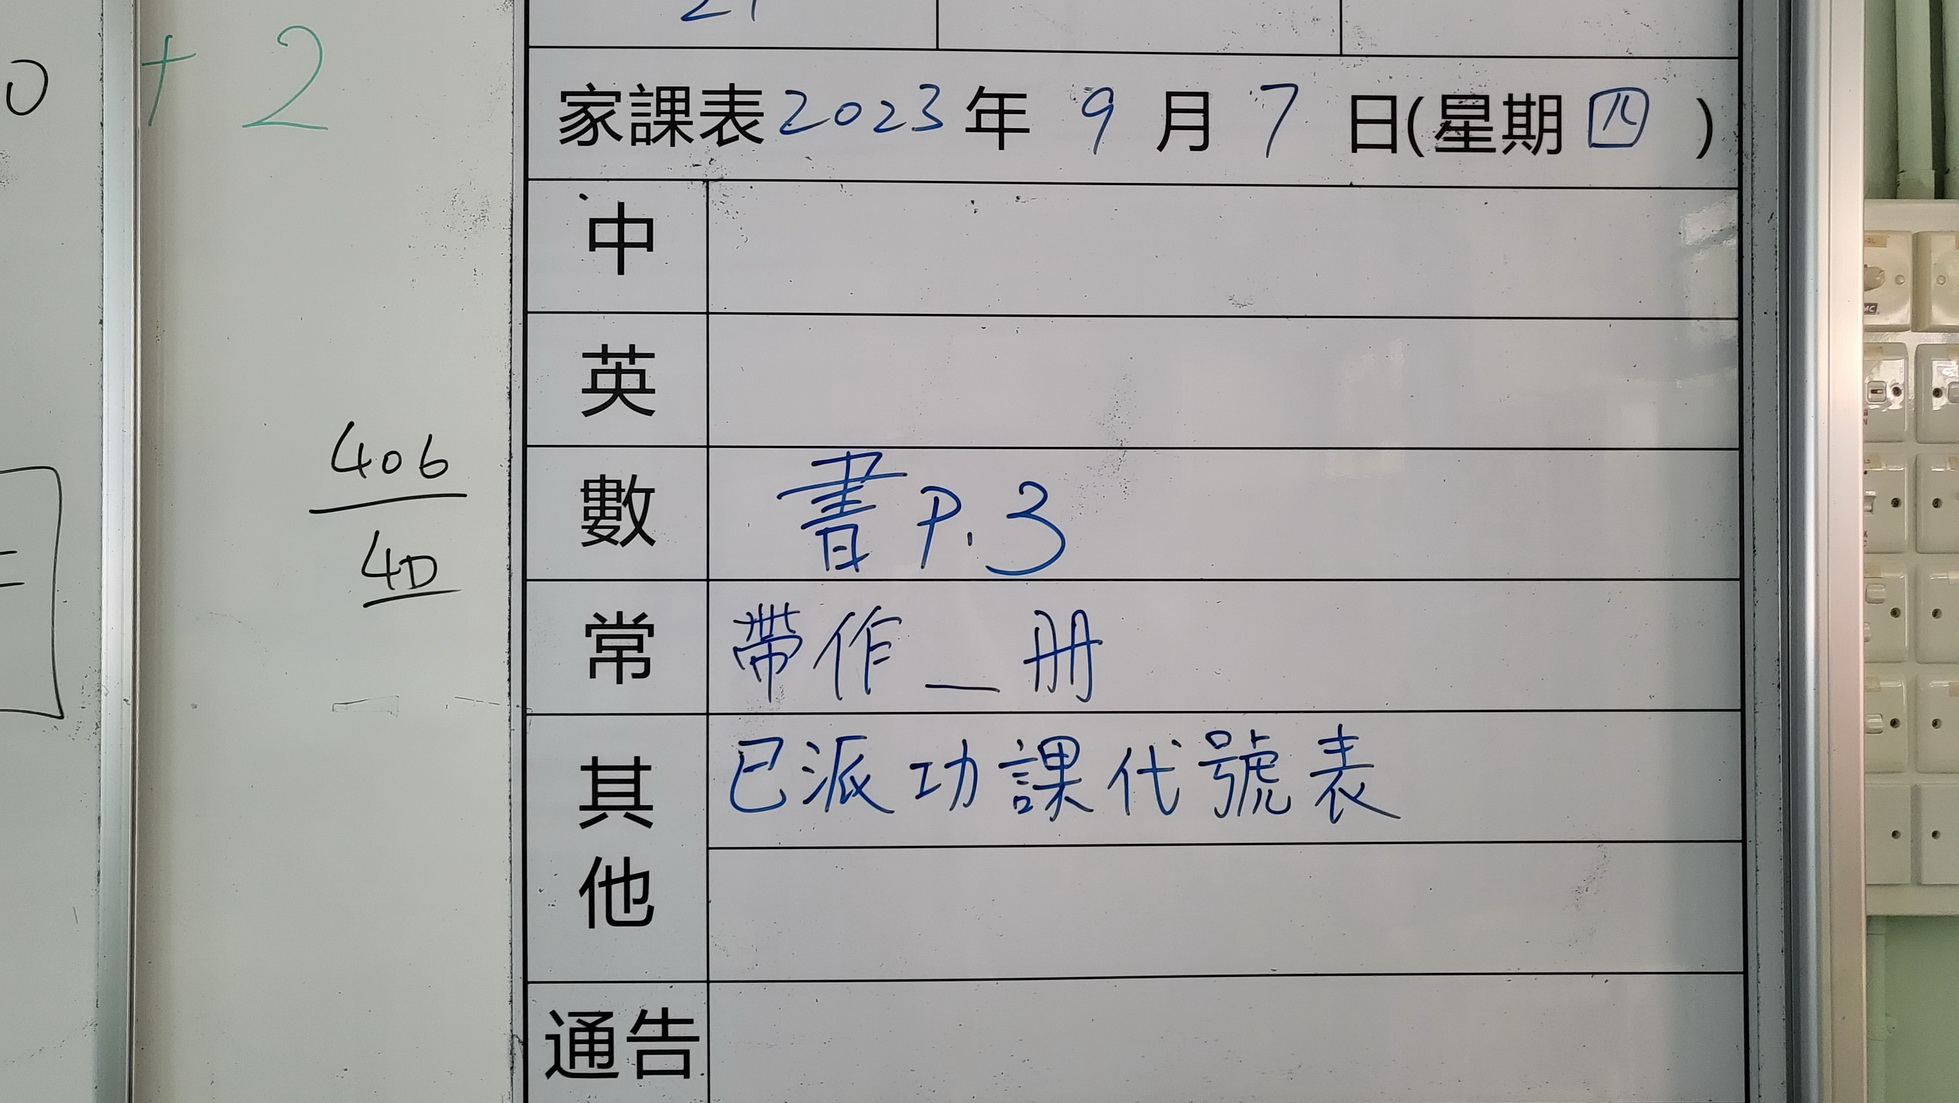 21
0 + 2
家課表2023年 9 月 7 日(星期四)
中
英
406
數 書P.3
4D
常 帶作_冊
其他 已派功課代號表
通告
=